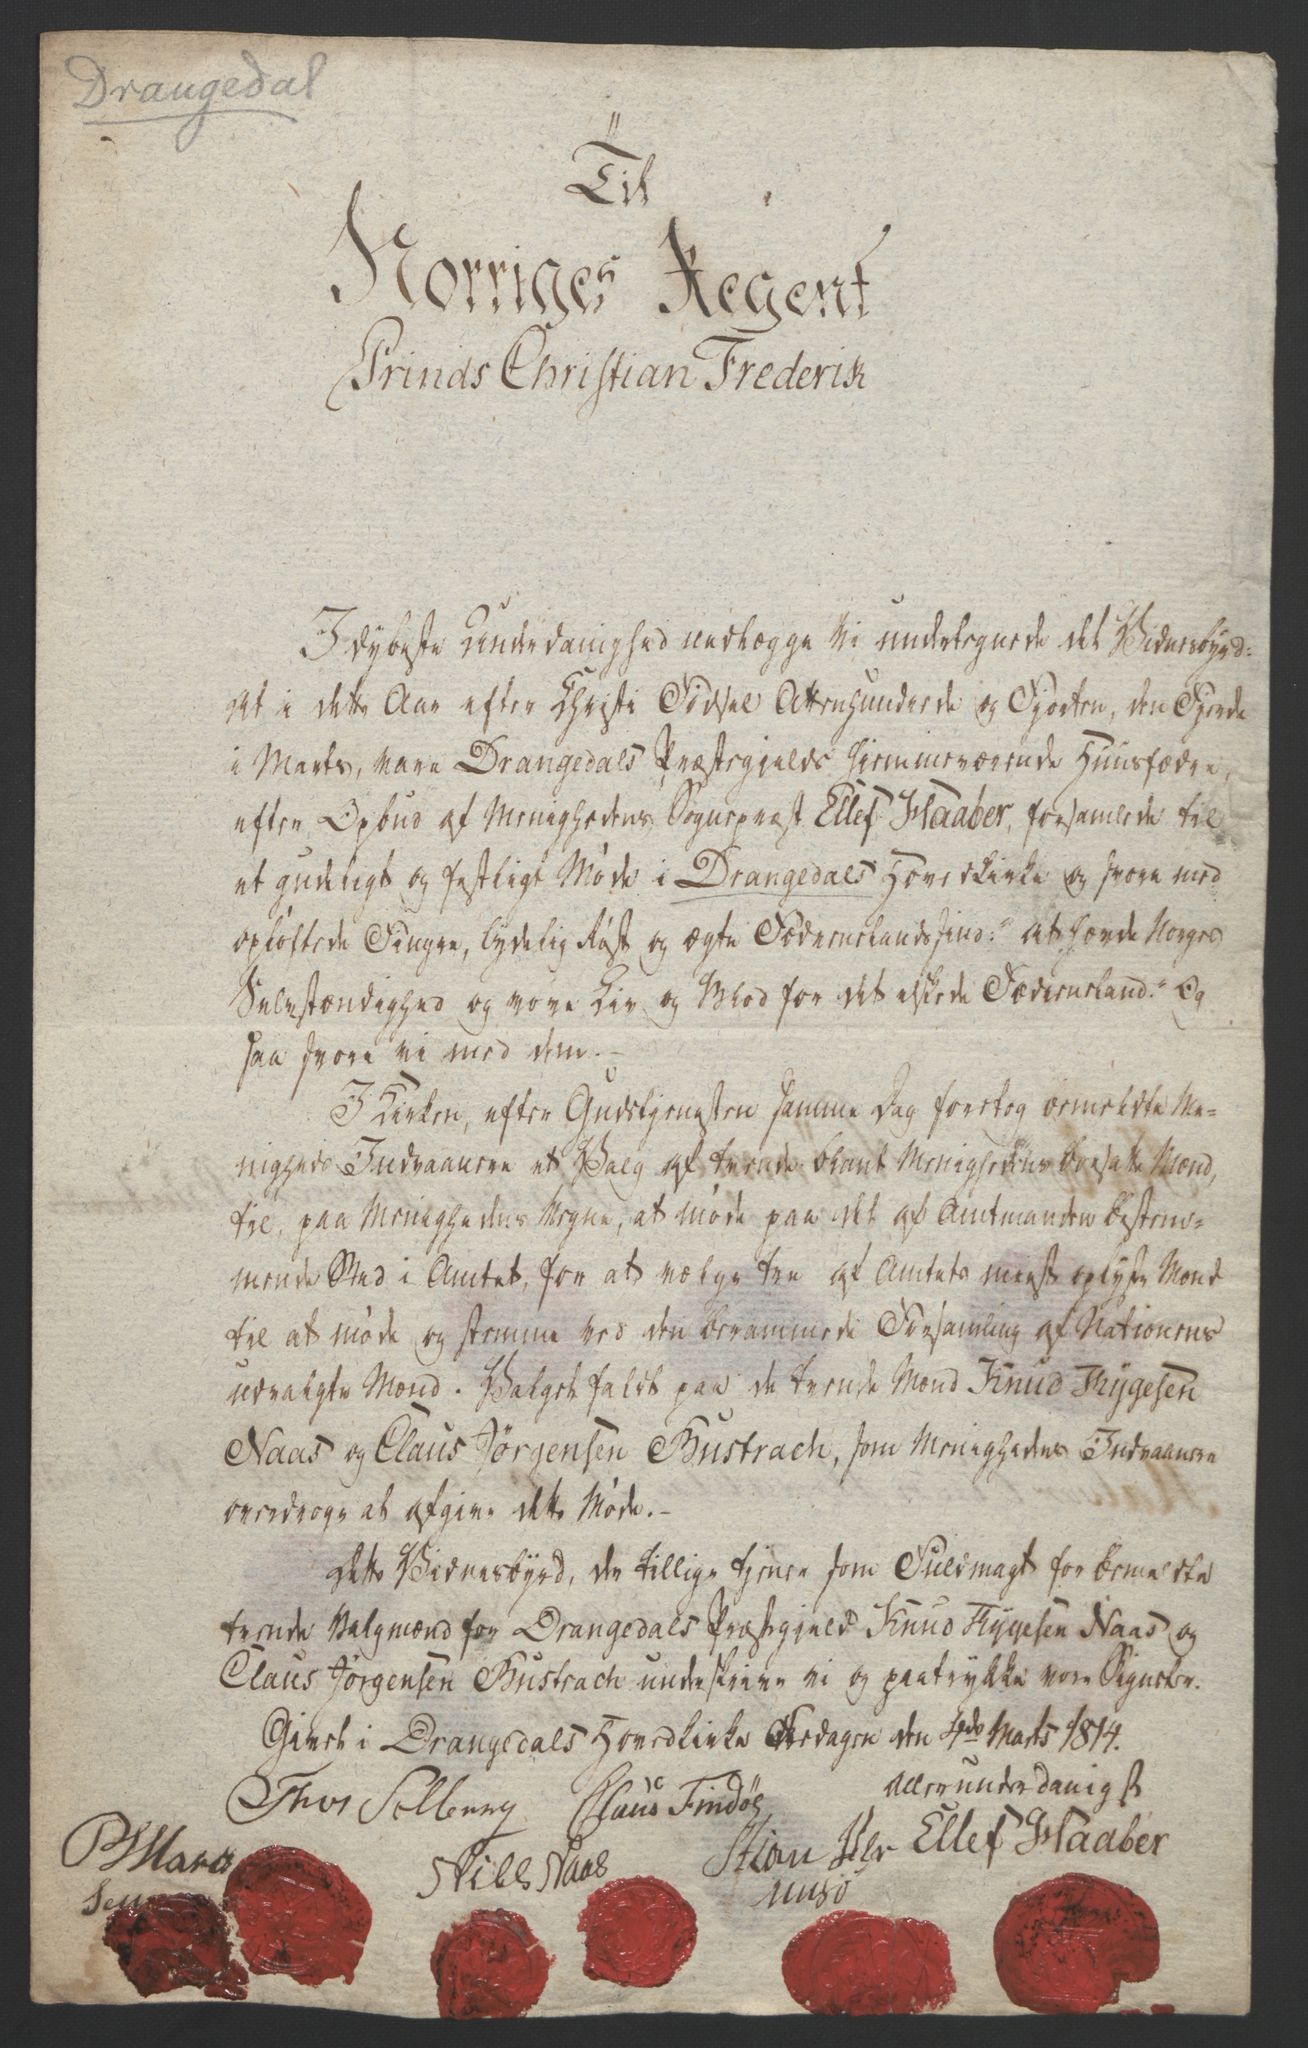 Drangedal
Til
Norriges Regent
Prinds Christian Frederik
I dybeste Underdanighed nedlægge Vi undertegnede det Vidnesbyrd:
At i dette Aar efter Christi Födsel Attenhundrede og Fjorten, den Fjerde
i Marts, vare Drangedals Præstegjelds hiemmeværende Huusfædre,
efter Opbud af Menighedens Sognepræst Ellef Haaber, forsamlede til
et gudeligt og festligt Møde i Drangedals Hovedkirke og svore med
oplöftede Fingre, lydelig Røst og ægte Fædrenelandssind: "at hævde Norges
Selvstændighed og vove Liv og Blod for det elskede Fædreneland." Og
saa svore vi med dem.–
I Kirken, efter Gudstjenesten samme Dag foretog bemeldte Me-
nigheds Indvaanere et Valg af tvende blant Menighedens bosatte Mænd,
til, paa Menighedens Vegne, at møde paa det af Amtmanden bestem-
mende Sted i Amtet, for at vælge tre af Amtets meest oplyste Mænd
til at møde og stemme ved den berammede Forsamling af Nationens
udvalgte Mænd. Valget faldt paa de tvende Mænd Knud Thygesen
Naas og Claus Jörgensen Bustrach, som Menighedens Indvaanere
overdroge at afgive dette Møde.–
Dette Vidnesbyrd, der tillige tjener som Fuldmagt for bemeldte
tvende Valgmænd for Drangedals Præstegjeld Knud Thygesen Naas og
Claus Jörgensen Bustrach underskrive vi og paatrykke vore Signeter.
Givet i Drangedals Hovedkirke Fredagen den 4de Marts 1814.
Allerunderdanigst
Thor Solberg Claus Findöe
Ellef Haaber
Niels Naas